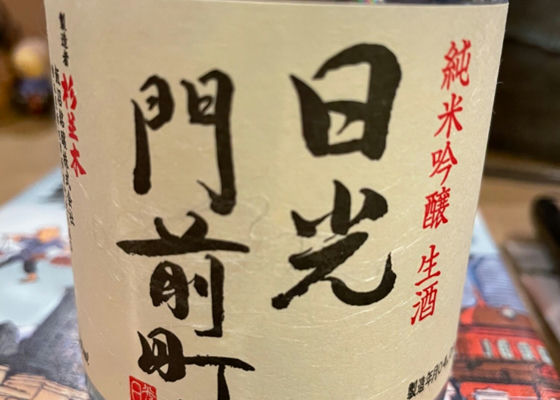 純米吟醸 生酒
日光
門前町
製造者 杉並木
製造年月